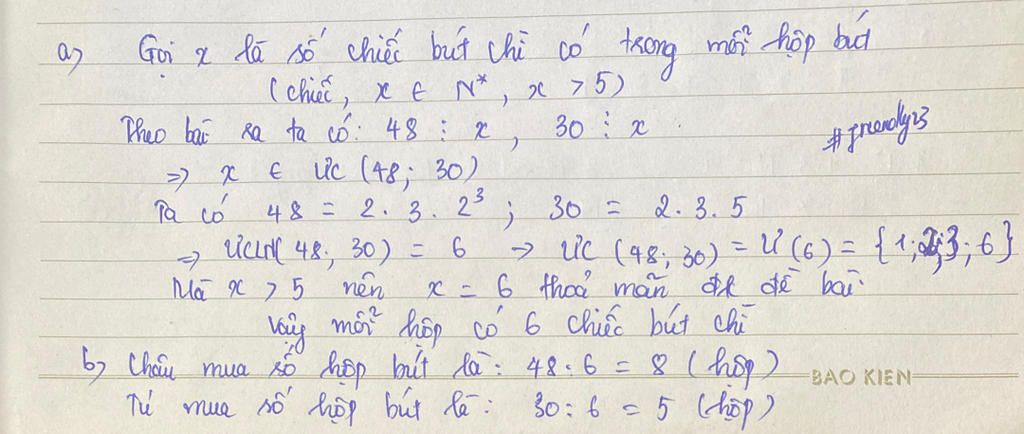 a) Gọi x là số chiếc bút chì có trong mỗi hộp bút
(chiếc, x ∈ N*, x > 5)
Theo bài ra ta có: 48 ⋮ x, 30 ⋮ x.
#friendly23
=> x ∈ ƯC (48; 30)
Ta có 48 = 2. 3. 2³ ; 30 = 2. 3. 5
=> ƯCLN(48; 30) = 6 → ƯC (48; 30) = Ư(6) = {1; 2; 3; 6}
Mà x > 5 nên x = 6 thoả mãn đk đề bài.
Vậy mỗi hộp có 6 chiếc bút chì
b) Châu mua số hộp bút là: 48 : 6 = 8 (hộp)
BAO KIEN
Tú mua số hộp bút là: 30 : 6 = 5 (hộp)